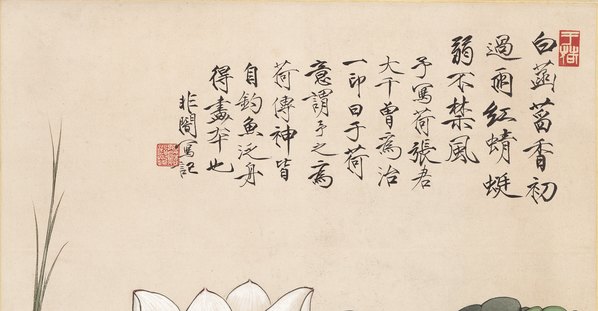 于荷
白菡萏香初
過雨紅蜻蜓
弱不禁風
予寫荷張君
大千曾為治
一印曰于荷
意謂予之為
荷傳神皆
自釣魚泛舟
得畫本也
非闇寫記